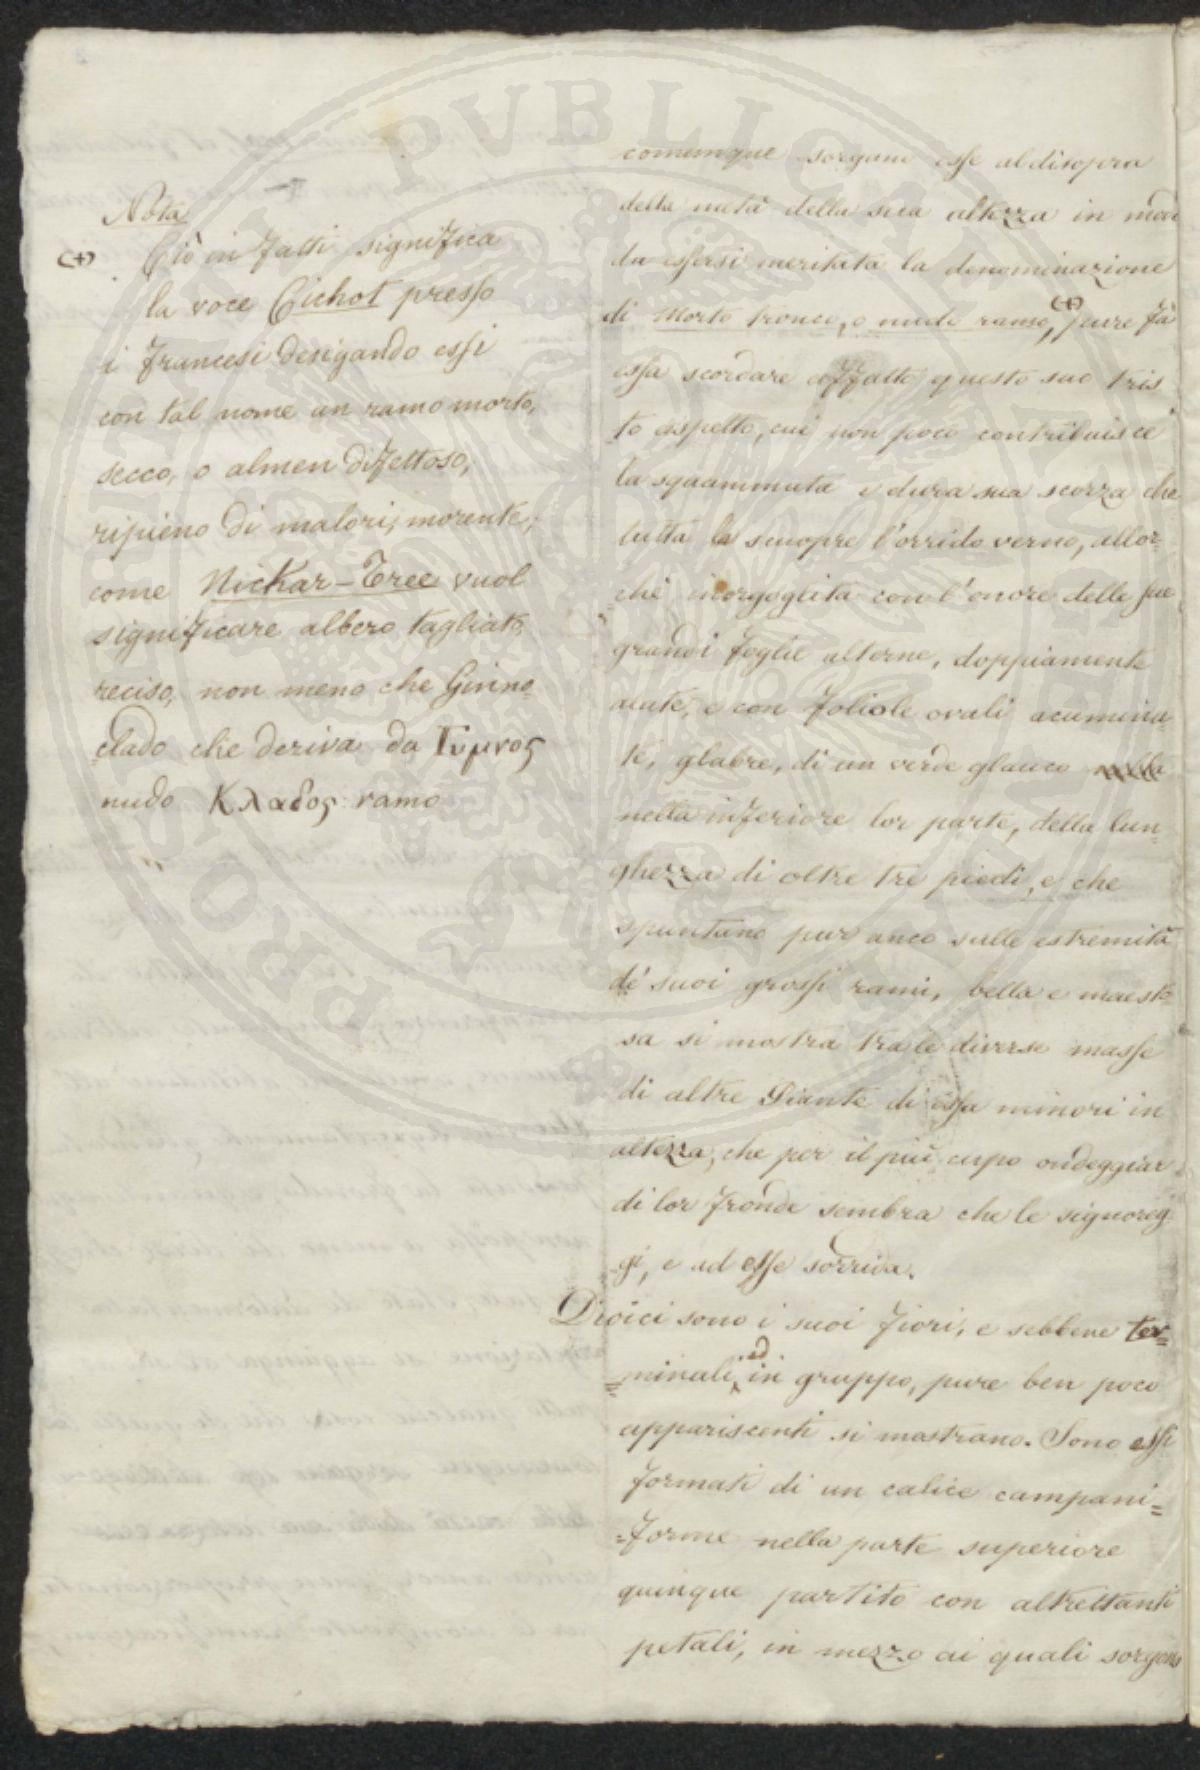 Nota
(+) Ciò in fatti significa
la voce Cichot presso
i francesi desigando essi
con tal nome un ramo morto,
secco, o almen difettoso,
ripieno di malori, morente;
come Nickar-Tree vuol
significare albero tagliato,
reciso, non meno che Ginno=
=clado che deriva da Γυμνος
nudo Κλαδος ramo
comunque sorgano esse al disopra
della metà della sua altezza in modo
da essersi meritata la denominazione
di Morto tronco, o nudo ramo, (+) pure fà
essa scordare affatto questo suo tris
to aspetto, cui non poco contribuisce
la squammata e dura sua scorza che
tutta la scuopre l'orrido verno, allor=
chè inorgoglita con l'onore delle sue
grandi foglie alterne, doppiamente
alate, e con foliole ovali acumina=
te, glabre, di un verde glauco
nella inferiore lor parte, della lun=
ghezza di oltre tre piedi, e che
spuntano pur anco sulle estremità
de' suoi grossi rami, bella e maesto=
sa si mostra tra le diverse masse
di altre Piante di essa minori in
altezza, che per il più cupo ondeggiar
di lor fronde sembra che le signoreg=
gi, e ad esse sorrida.
Dioici sono i suoi fiori, e sebbene ter=
=minali, ed in gruppo, pure ben poco
appariscenti si mostrano. Sono essi
formati di un calice campani=
=forme nella parte superiore
quinque partito con altrettanti
petali, in mezzo ai quali sorgono
PUBLICNE